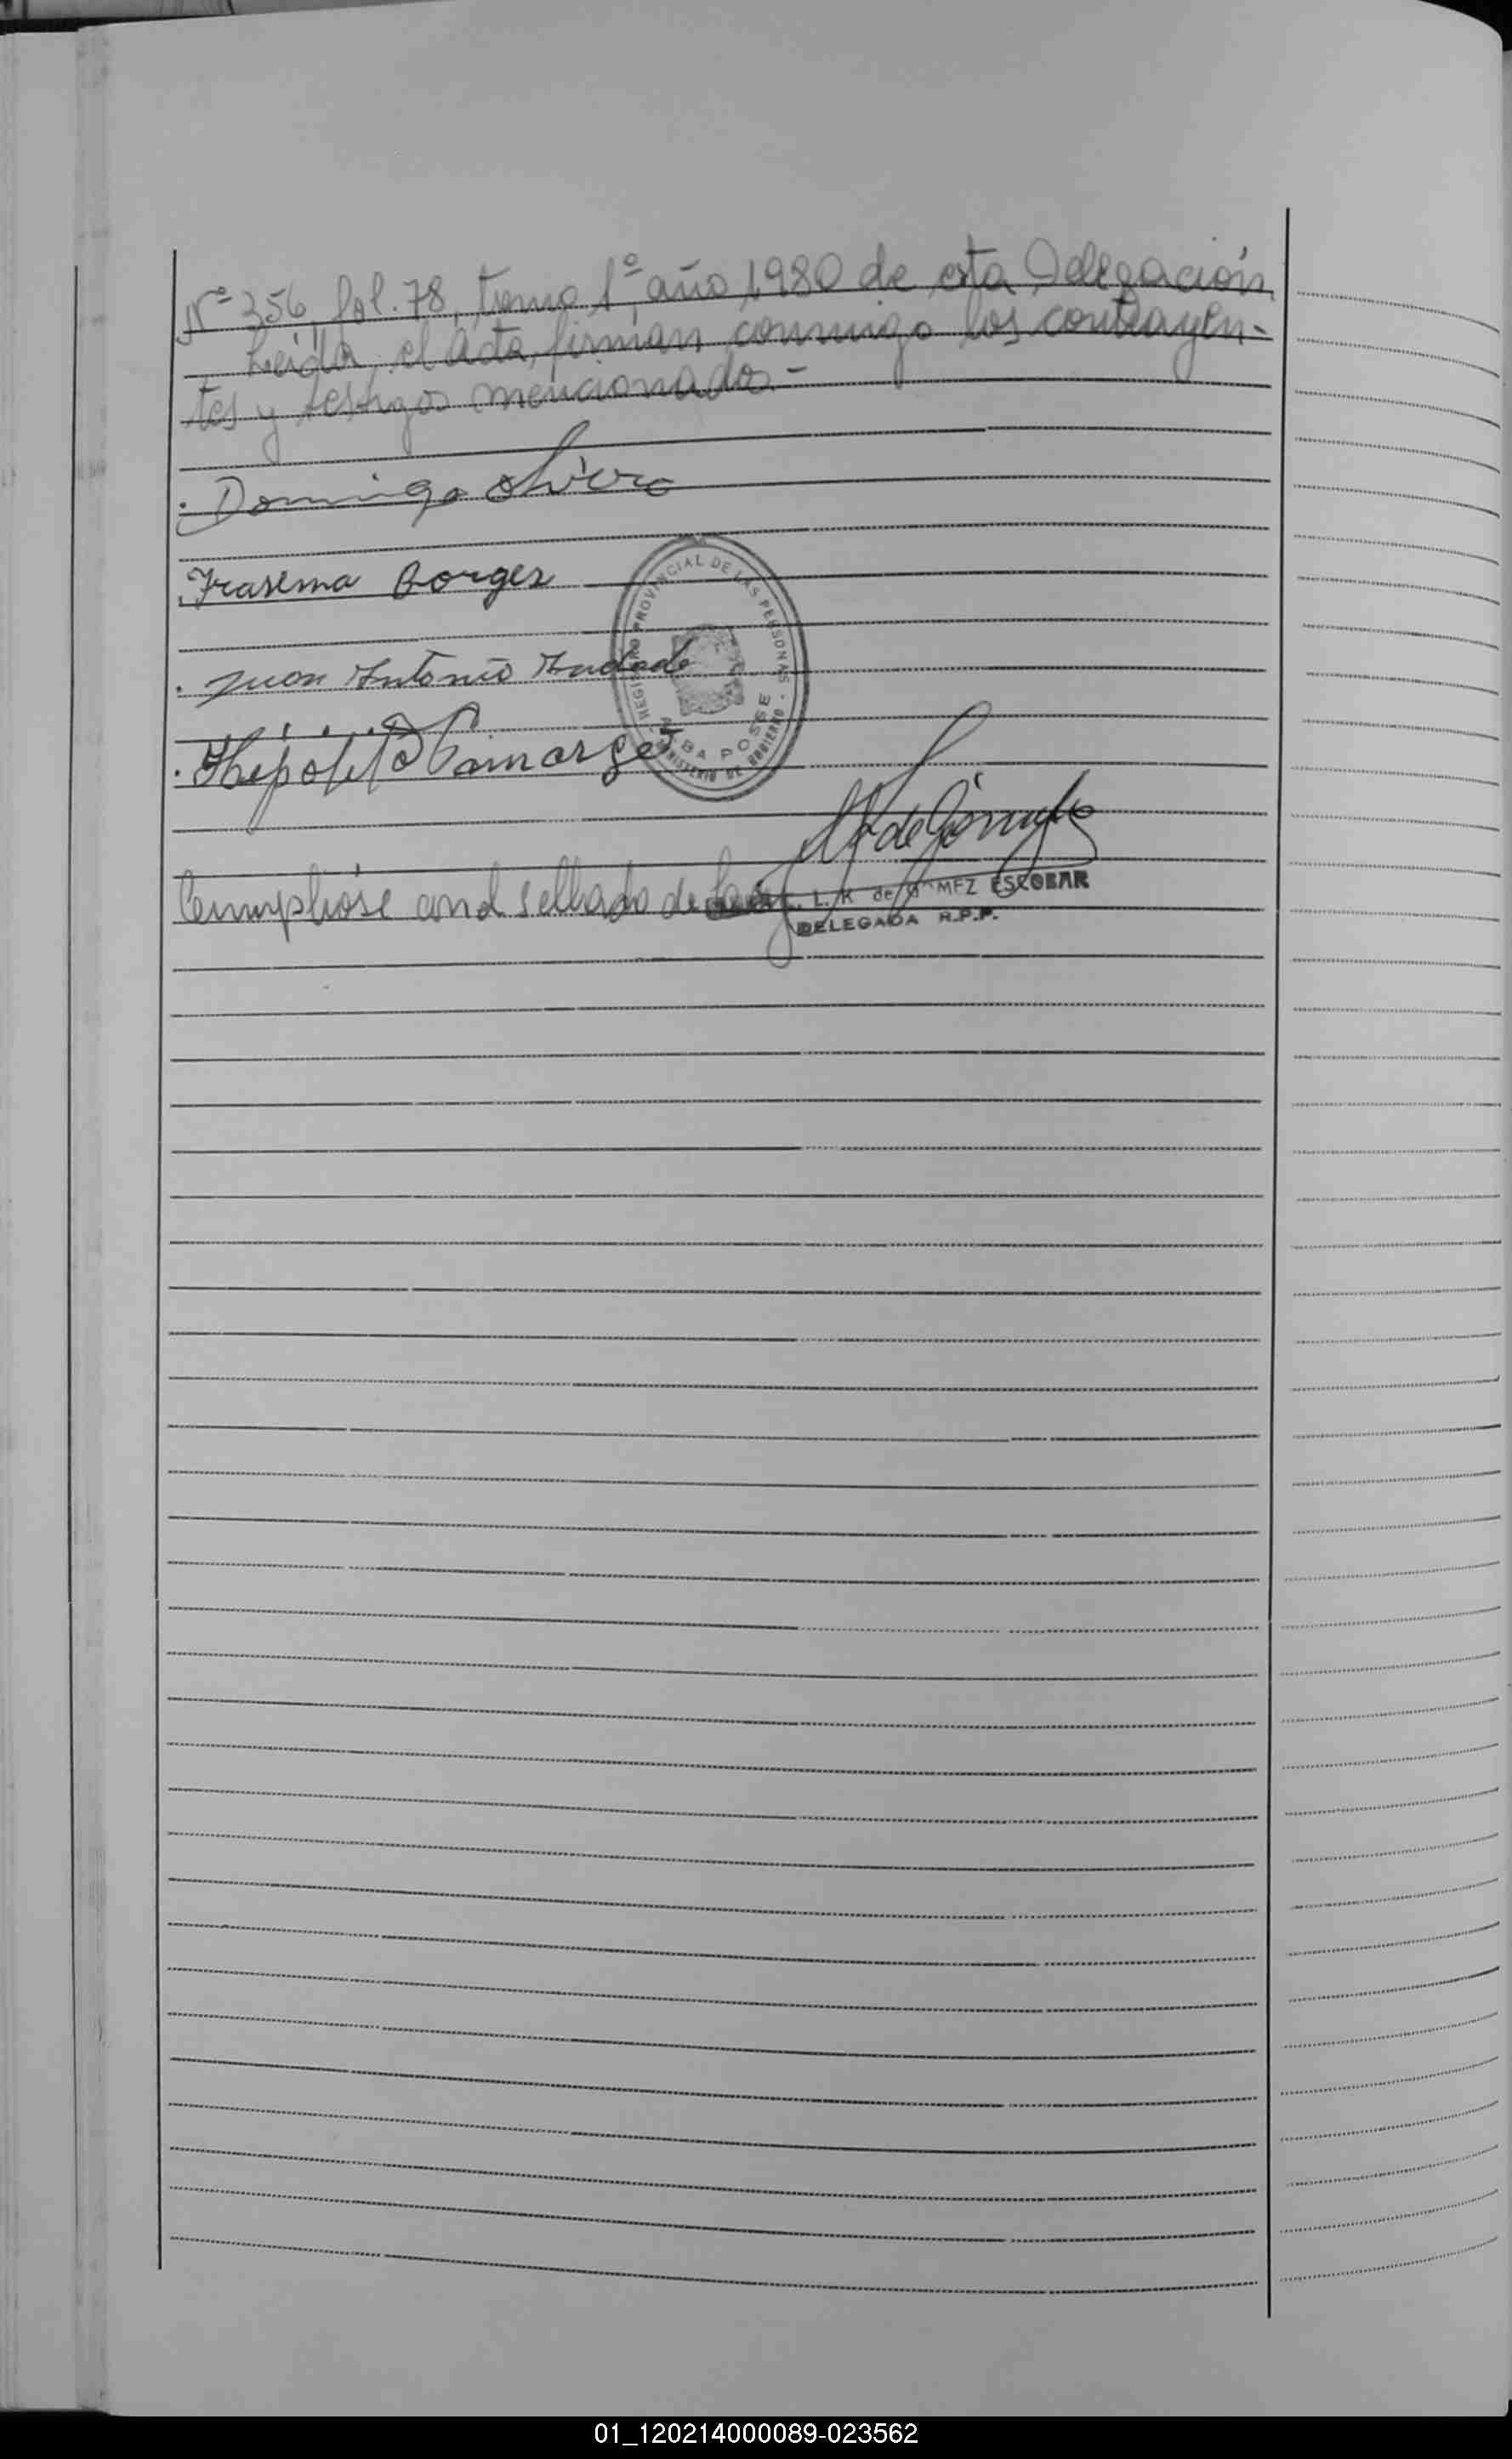 Nº 356, fol. 78, tomo 1º, año 1980 de esta Delegación
Leída el acta, firman conmigo los contrayen-
tes y testigos mencionados.-
Domingo Olivera
Irasema Borges
Juan Antonio Andade
Hipólito Camargo
REGISTRO PROVINCIAL DE LAS PERSONAS
ALBA POSSE
MINISTERIO DE GOBIERNO
Cumplióse con el sellado de Ley
L. K. de GOMEZ ESCOBAR
DELEGADA R.P.P.
01_120214000089-023562